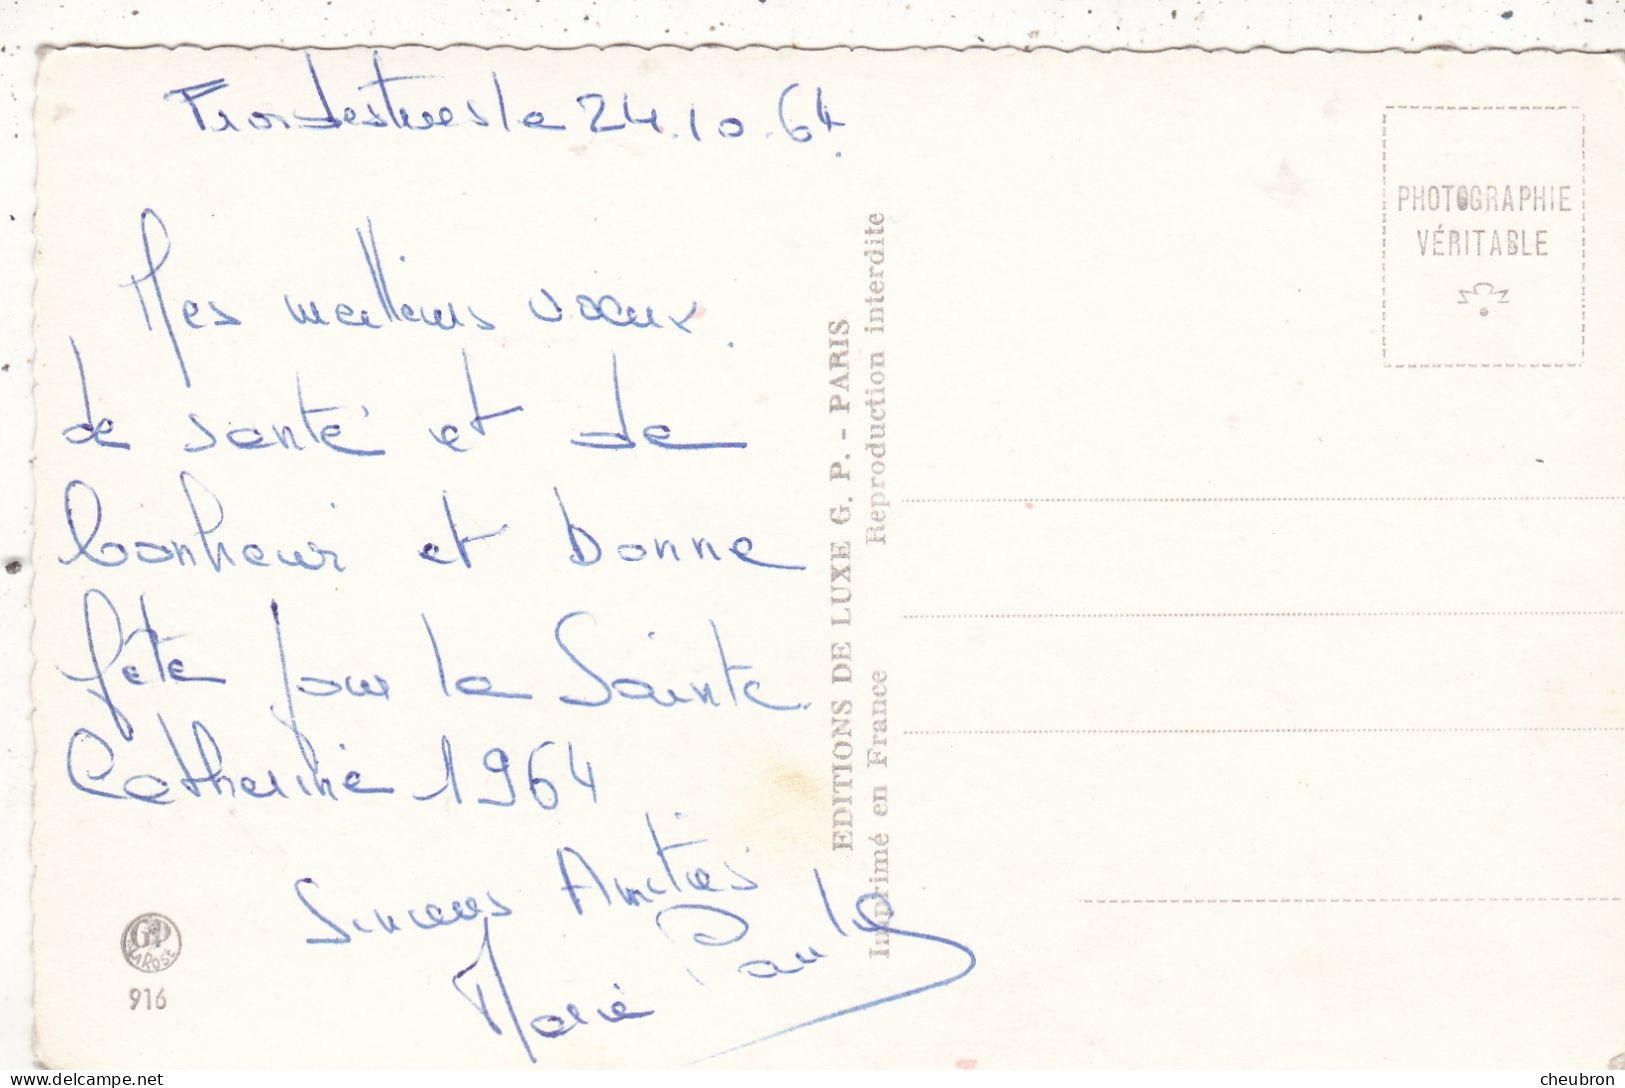 Froidestrées le 24.10.64.
Mes meilleurs voeux
de santé et de
bonheur et bonne
fête pour la Sainte
Catherine 1964
Sincères Amitiés
Marie Paule
PHOTOGRAPHIE
VÉRITABLE
EDITIONS DE LUXE G. P. - PARIS
Imprimé en France Reproduction interdite
GP
LA ROSE
916
cheubron - delcampe.net